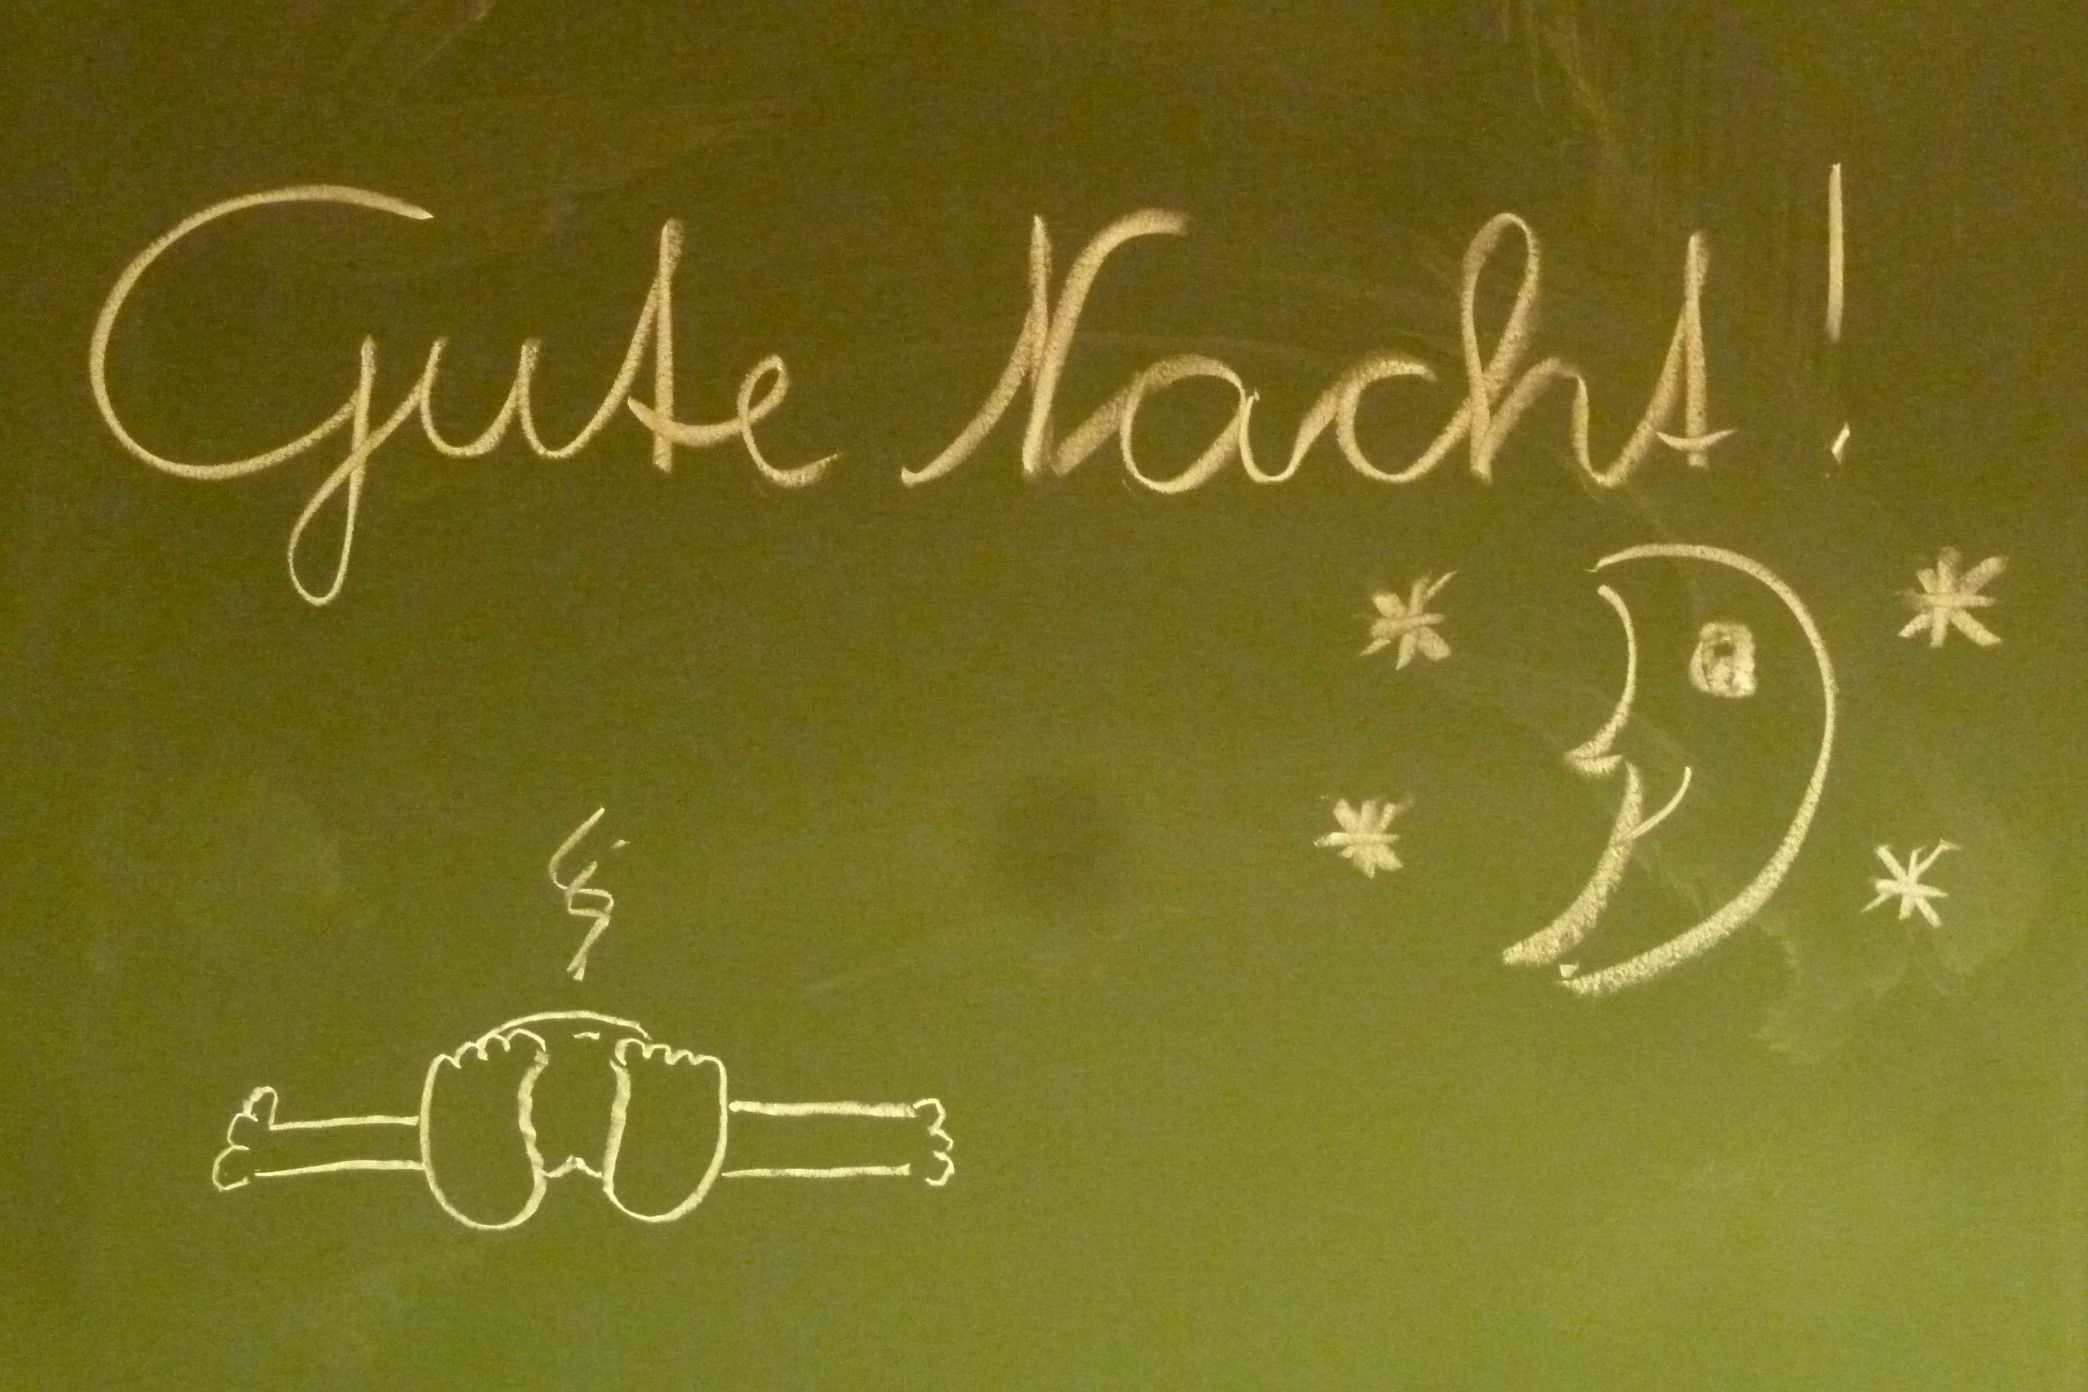 Gute Nacht!